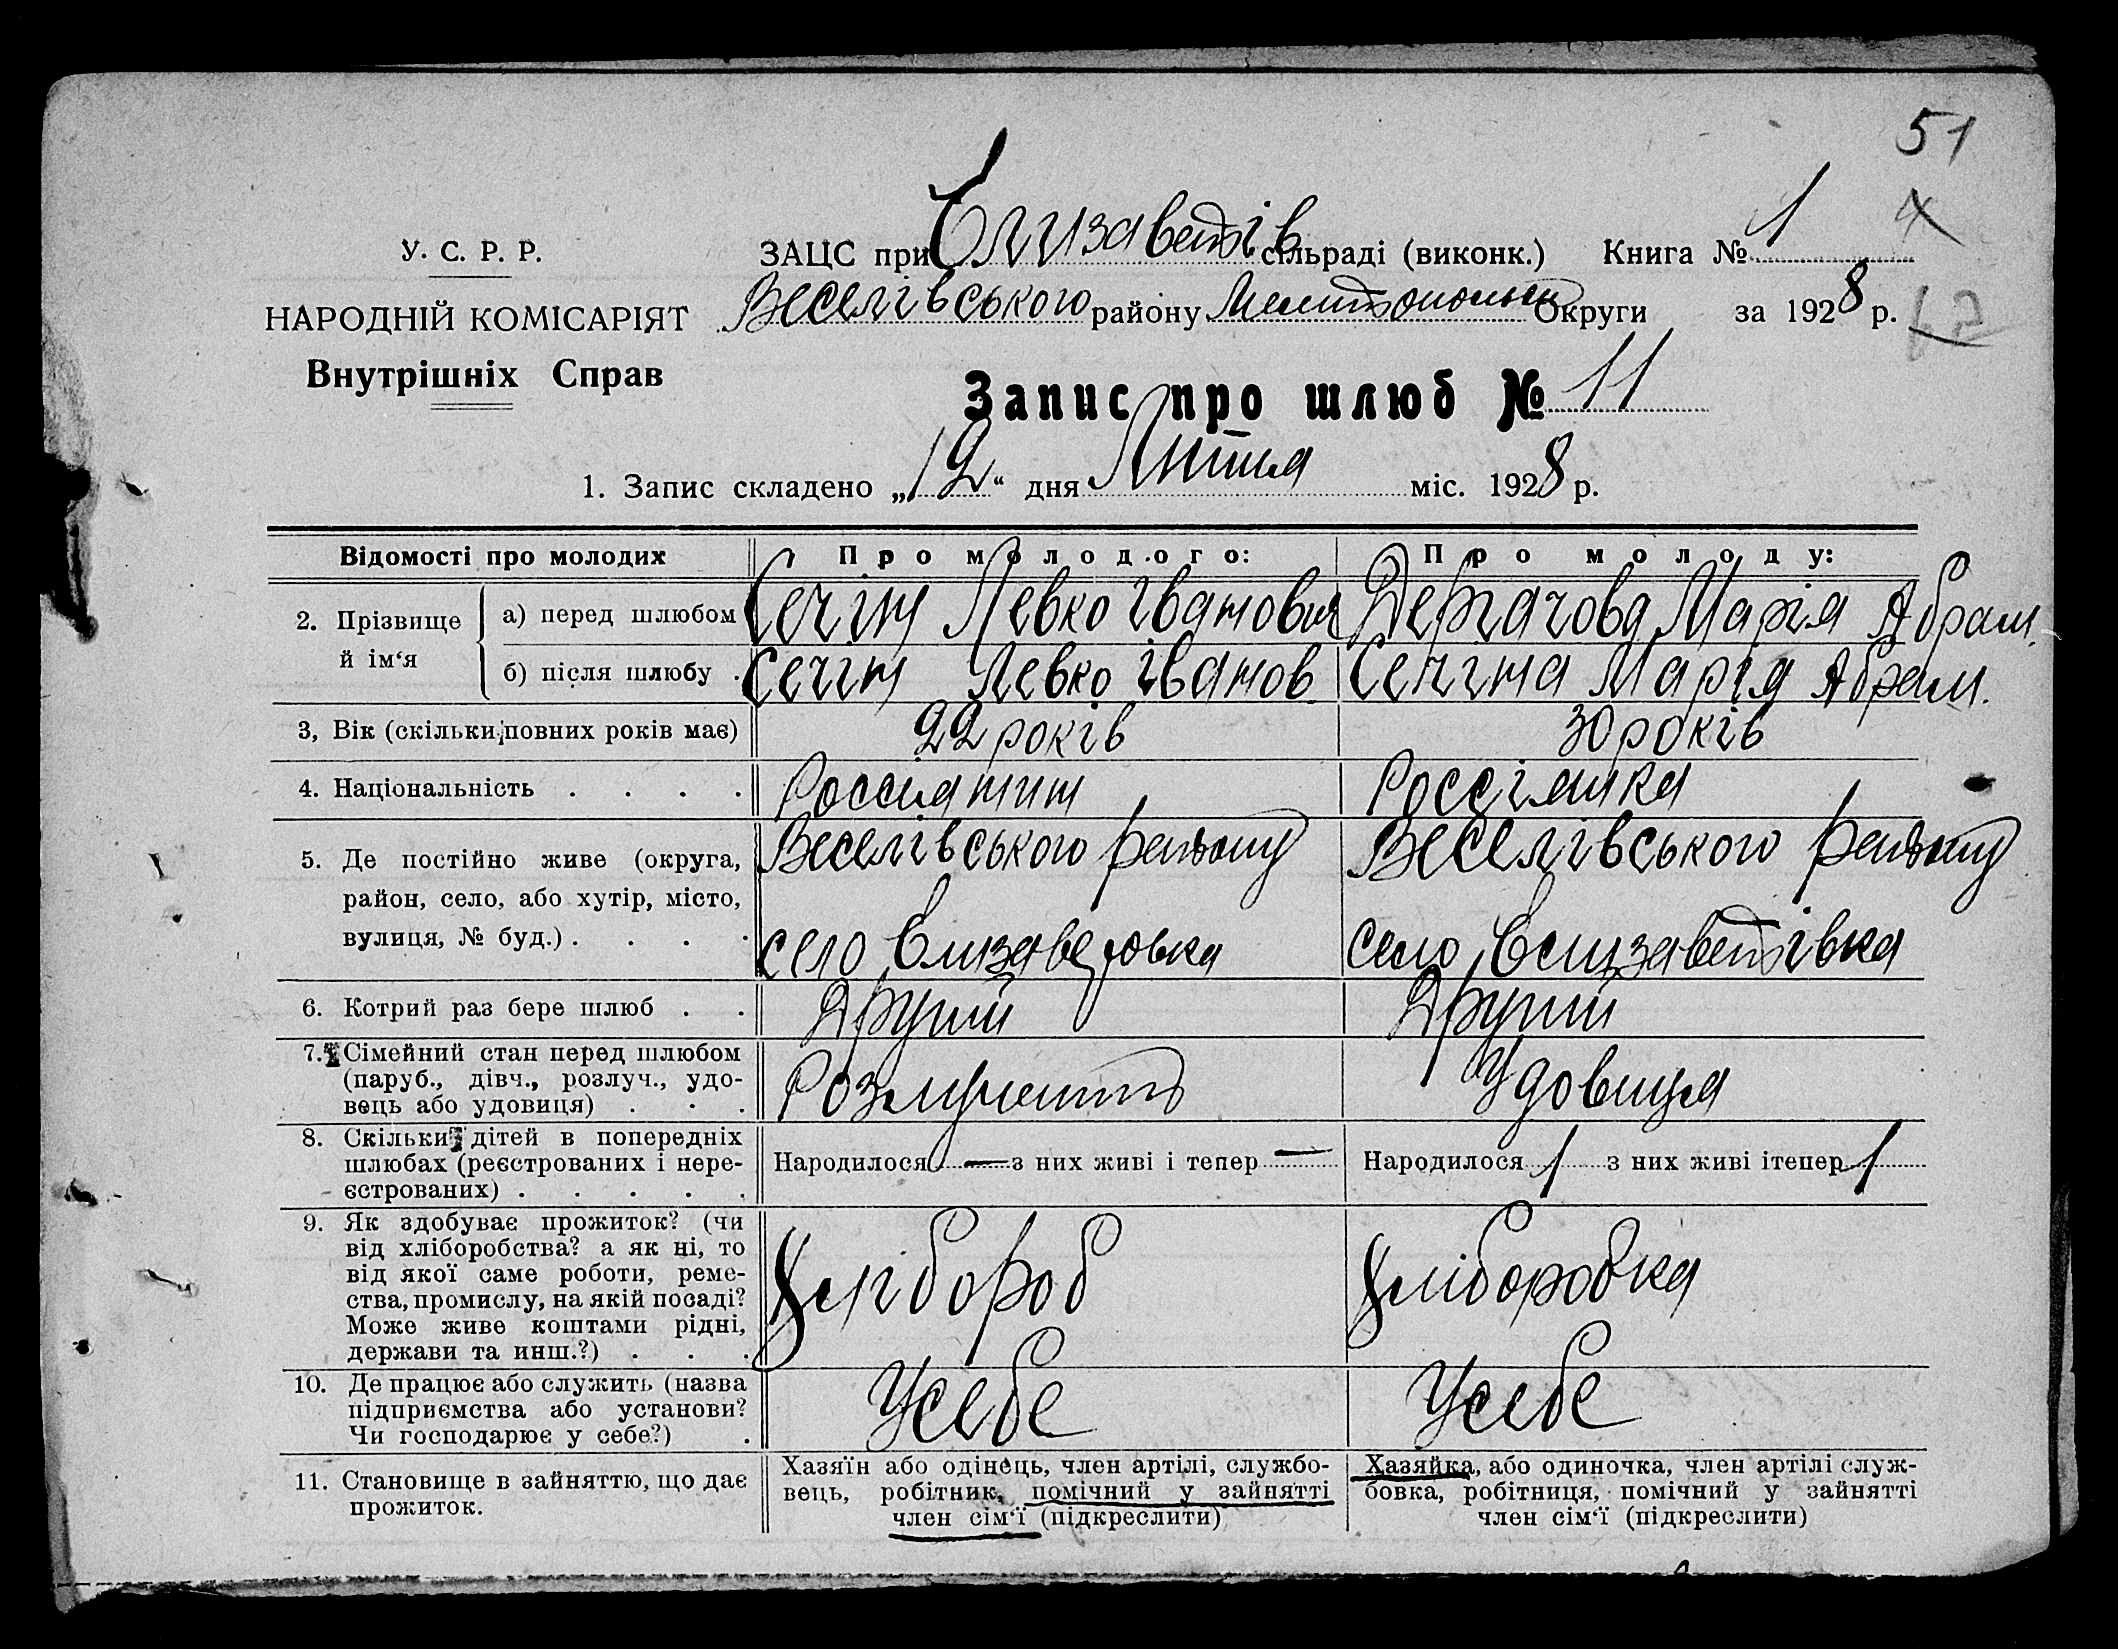 51
У. С. Р. Р.
ЗАЦС при Єлизаветів сільраді (виконк.) Книга № 1
4
НАРОДНІЙ КОМІСАРІЯТ
Веселівського району Мелитопольськ Округи за 1928 р.
Внутрішніх Справ
Запис про шлюб № 11
1. Запис складено „12“ дня Липня міс. 1928 р.
Відомості про молодих
Про молодого:
Про молоду:
2. Прізвище й ім‘я
а) перед шлюбом
Сечін Левко Іванович
Дергачова Марія Абрам.
б) після шлюбу .
Сечін Левко Іванов
Сечіна Марія Абрам.
3, Вік (скільки повних років має)
22 років
30 років
4. Національність . . . .
Россиянин
Россіянка
5. Де постійно живе (округа,
район, село, або хутір, місто,
вулиця, № буд.) . . . .
Веселівського району
село Елизаветовка
Веселівського району
село Єлизаветівка
6. Котрий раз бере шлюб . .
Другий
Другий
7. Сімейний стан перед шлюбом
(паруб., дівч., розлуч., удо-
вець або удовиця) . . .
Розлучений
Удовиця
8. Скільки дітей в попередніх
шлюбах (реєстрованих і нере-
єстрованих) . . . . .
Народилося — з них живі і тепер —
Народилося 1 з них живі ітепер 1
9. Як здобуває прожиток? (чи
від хліборобства? а як ні, то
від якої саме роботи, реме-
ства, промислу, на якій посаді?
Може живе коштами рідні,
держави та инш.?) . . .
Хлібороб
Хліборобка
10. Де працює або служить (назва
підприємства або установи?
Чи господарює у себе?) .
Усебе
Усебе
11. Становище в зайняттю, що дає
прожиток.
Хазяїн або одінець, член артілі, службо-
вець, робітник, помічний у зайнятті
член сім‘ї (підкреслити)
Хазяйка, або одиночка, член артілі служ-
бовка, робітниця, помічний у зайнятті
член сім‘ї (підкреслити)